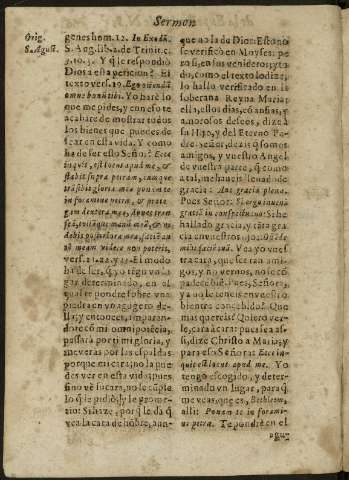 Sermon
Orig.
S. August.
genes hom. 12. In Exodũ.
S. Aug. lib. 2. de Trinit. c.
Y q̃ le respondiò
Dios a esta peticion? El
texto vers. 19. Ego ostendã
omne bonũ tibi. Yo harè lo
que me pides, y con esto te
acabarè de mostrar todos
los bienes que puedes de-
sear en esta vida. Y como
ha de ser esto Señor? Ecce
inquit, est locus apud me, &
stabis supra petram, cumque
trãsibit gloria mea ponam te
in foramine petræ, & prote-
gam dextera mea, donec tran-
seã, tollàque manũ meã, & vi-
debis posteriora mea, faciẽ au-
tẽ meam videre non poteris,
vers. 21. 22. y 23. El modo
ha de ser, q̃ yo tẽgo vn lu-
gar determinado, en el
qual te pondrè sobre vna
piedra en vn agugero de-
lla; y entonces, amparan-
dote cõ mi omnipotẽcia,
passarà por ti mi gloria, y
me veràs por las espaldas
porque mi cara; no la pue-
des ver en esta vida: pues
sino vè su cara, no se cũple
lo q̃ le pidiò, y le prome-
tiò: Si haze, porq̃ le dà q̃
vea la cara de hõbre, aun-
que no la de Dios: Esto no
se verificò en Moyses: pe-
ro si, en sus venideros; y to-
do, como el texto lo dize,
lo hallo verificado en la
soberana Reyna Maria:
ella, en los dias, cõ ansias, y
amorosos deseos, dize à
su Hijo, y del Eterno Pa-
dre: señor, dezis q̃ somos
amigos, y vuestro Angel
de vuestra parte, q̃ como
a tal, me haueis llenado de
gracia: Aue gratia plena.
Pues Señor: Si ergo inueni
gratiã in conspectu tuo: Si he
hallado gracia, y tãta gra-
cia en vuestros ojos: Ostẽde
mihi faciẽ tuã. Vea yo vues
tra cara, que ser tan ami-
gos, y no vernos, no se cõ-
padece bie: Pues, Señora,
ya no le teneis en vuestro
vientre concebido? Que
mas quereis? Quiero ver-
le, cara à cara: pues sea as-
si, dize Christo a Maria; y
para esso Señora: Ecce in-
quit est locus apud me. Yo
tengo escogido, y deter-
minado vn lugar, para q̃
me veas, que es, Bethleem,
alli: Ponam te in forami-
ne petræ. Te pondrè en el
agu-